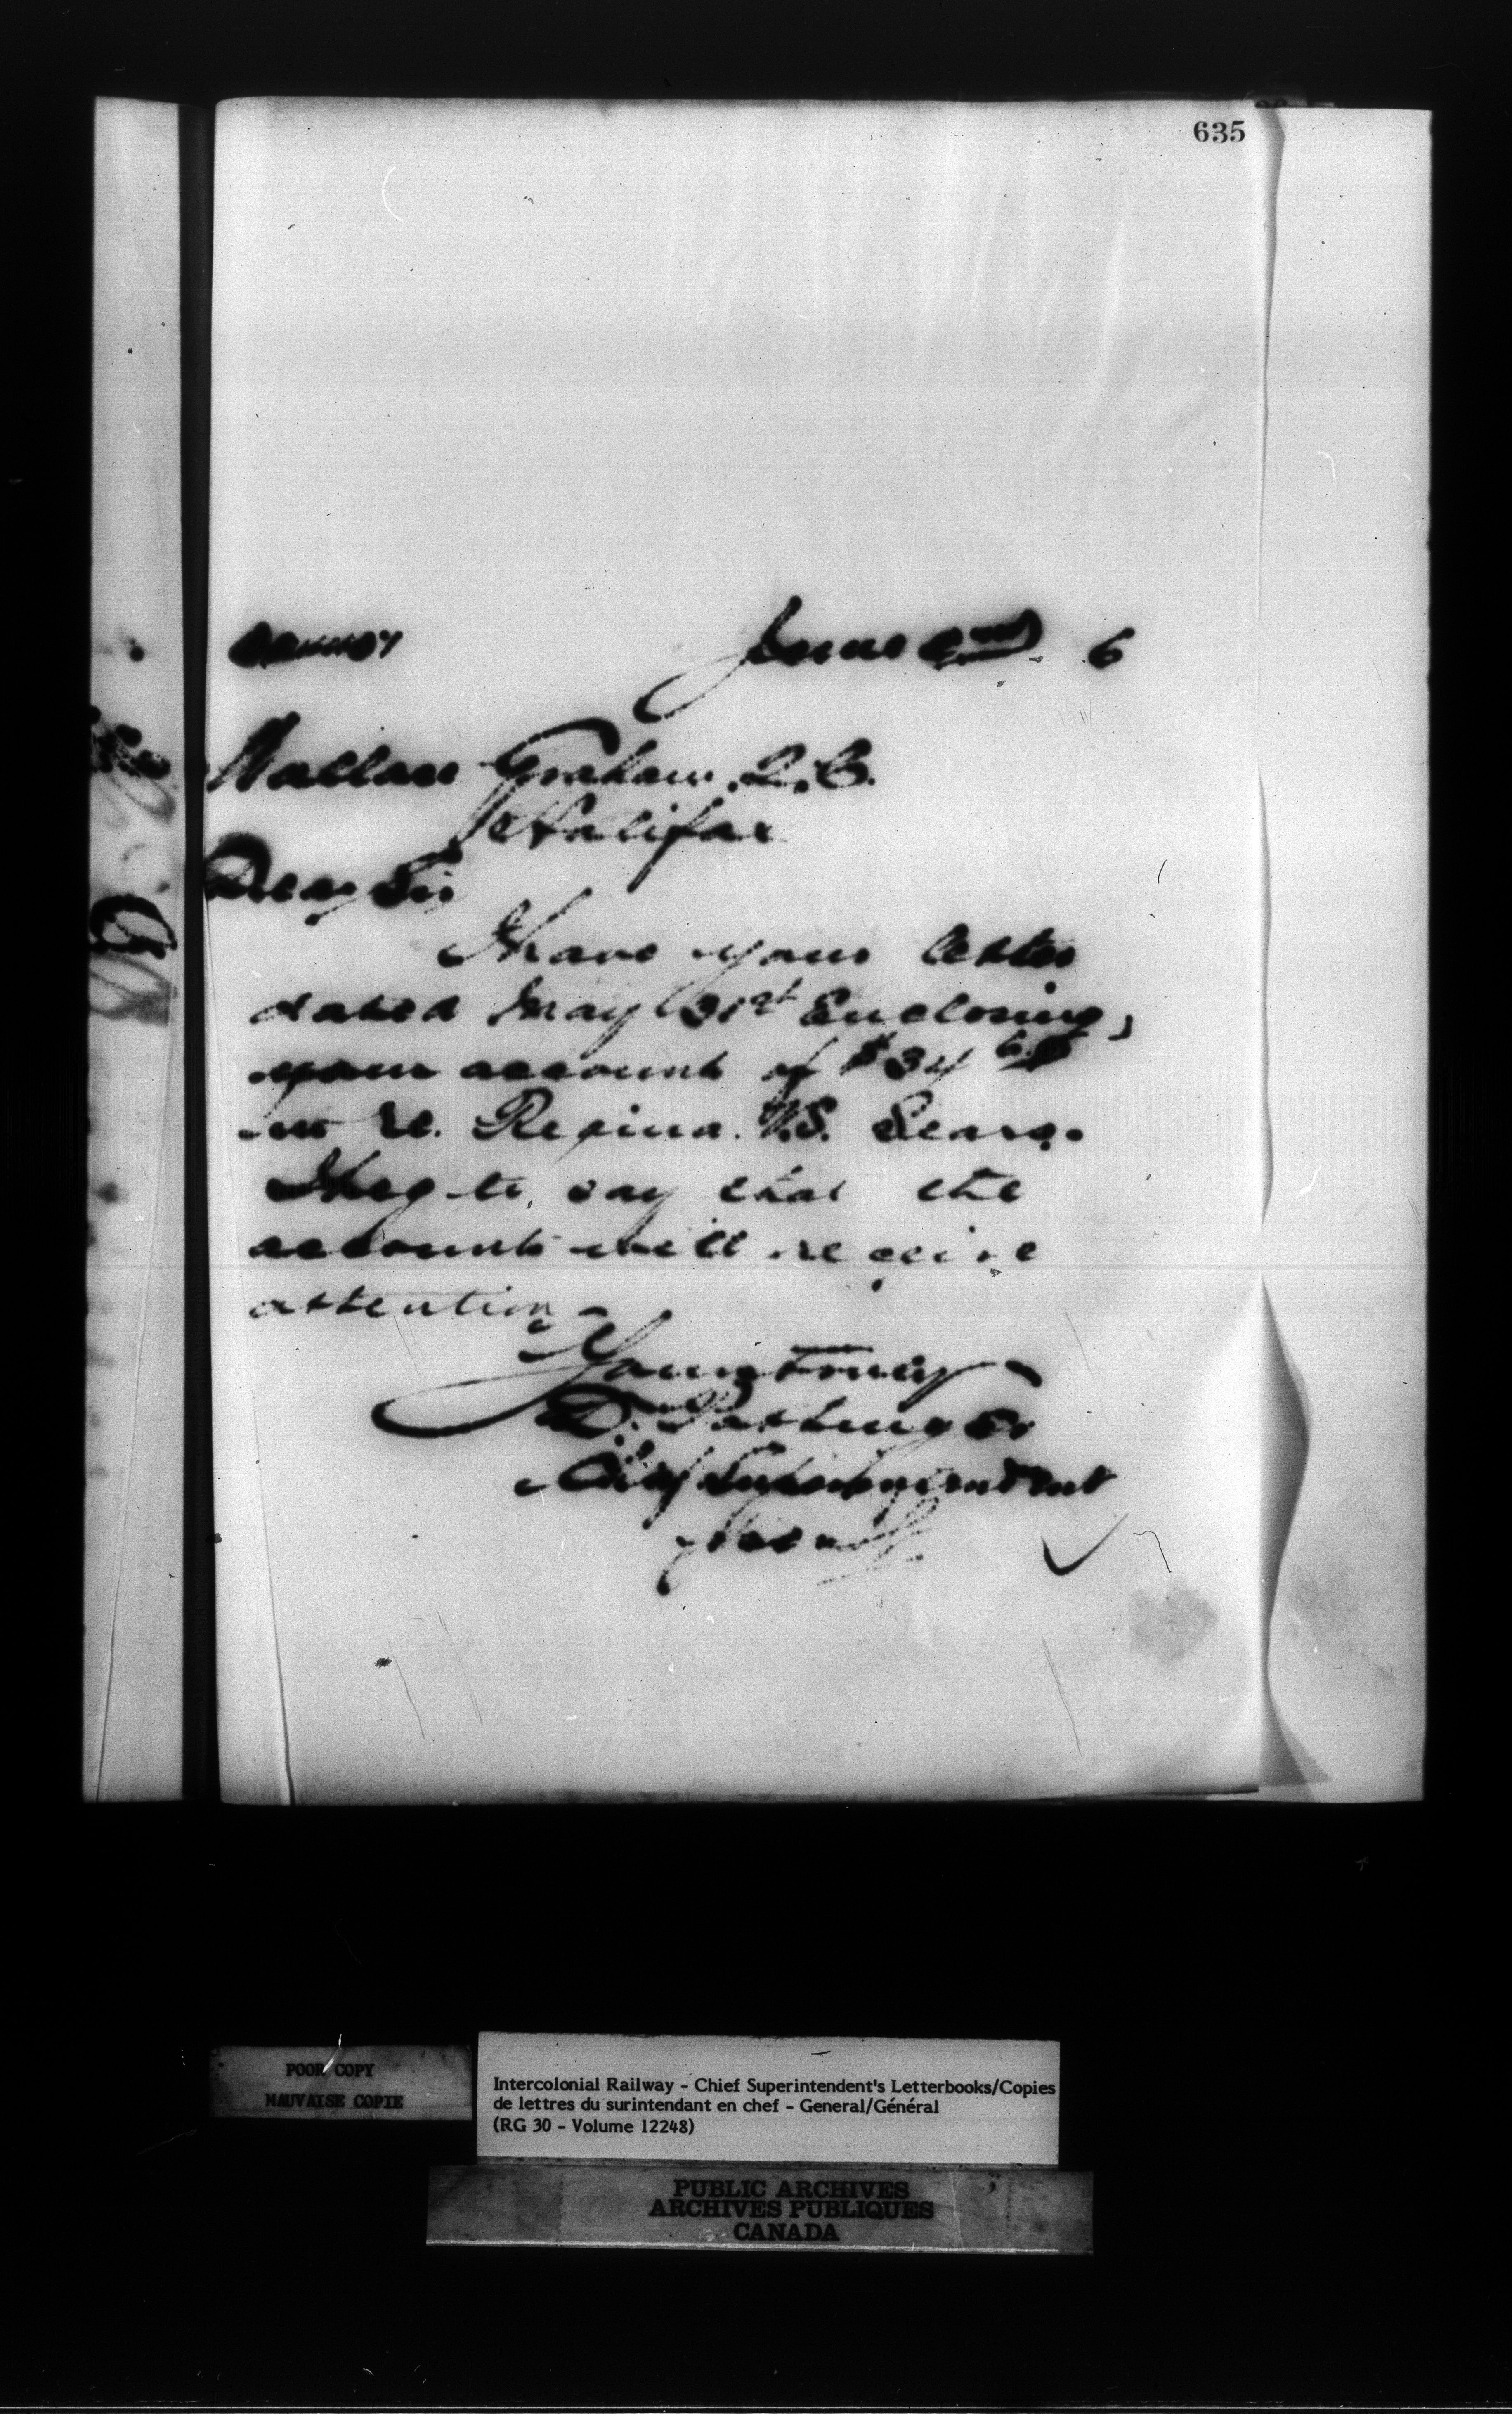 635
June 2nd 6
Wallace Graham. Q.C.
Halifax
Dear Sir
I have your letter
dated May 31st Enclosing
your account of $34
in re. Regina. V.S. Sears.
I beg to say that the
accounts will receive
attention
Yours truly
D. Pottinger
Chief Superintendent
POOR COPY
MAUVAISE COPIE
Intercolonial Railway - Chief Superintendent's Letterbooks/Copies
de lettres du surintendant en chef - General/Général
(RG 30 - Volume 12248)
PUBLIC ARCHIVES
ARCHIVES PUBLIQUES
CANADA